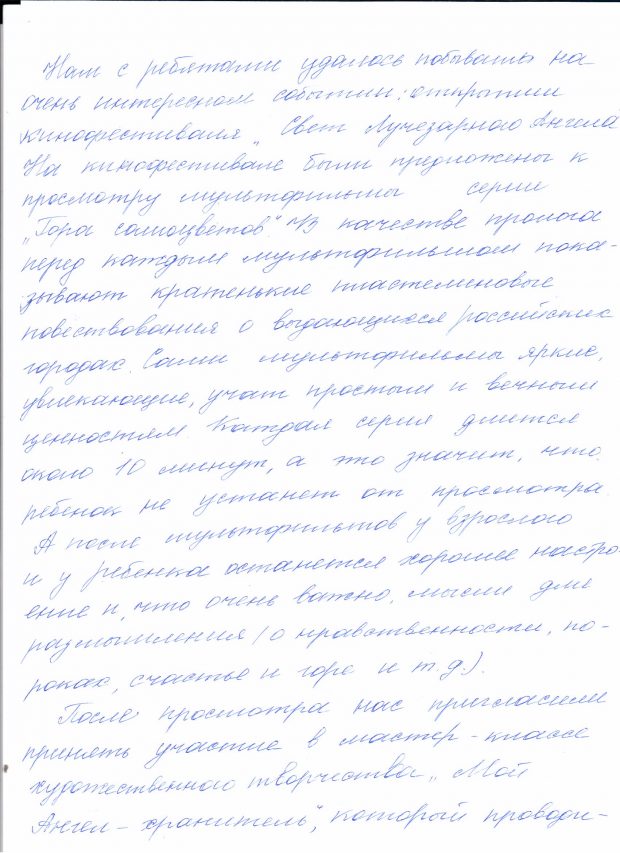 Нам с ребятами удалось побывать на
очень интересном событии: открытии
кинофестиваля „Свет Лучезарного Ангела
На кинофестивале были предложены к
просмотру мультфильмы серии
„Гора самоцветов“. В качестве пролога
перед каждым мультфильмом пока-
зывают кратенькие пластелиновые
повествования о выдающихся российских
городах. Сами мультфильмы яркие,
увлекающие, учат простым и вечным
ценностям. Каждая серия длится
около 10 минут, а это значит, что
ребенок не устанет от просмотра.
А после мультфильмов у взрослого
и у ребенка останется хорошее настро-
ение и, что очень важно, мысли для
размышления (о нравственности, по-
роках, счастье и горе и т.д.).
После просмотра нас пригласили
принять участие в мастер-классе
художественного творчества „Мой
Ангел-хранитель“, который проводи-